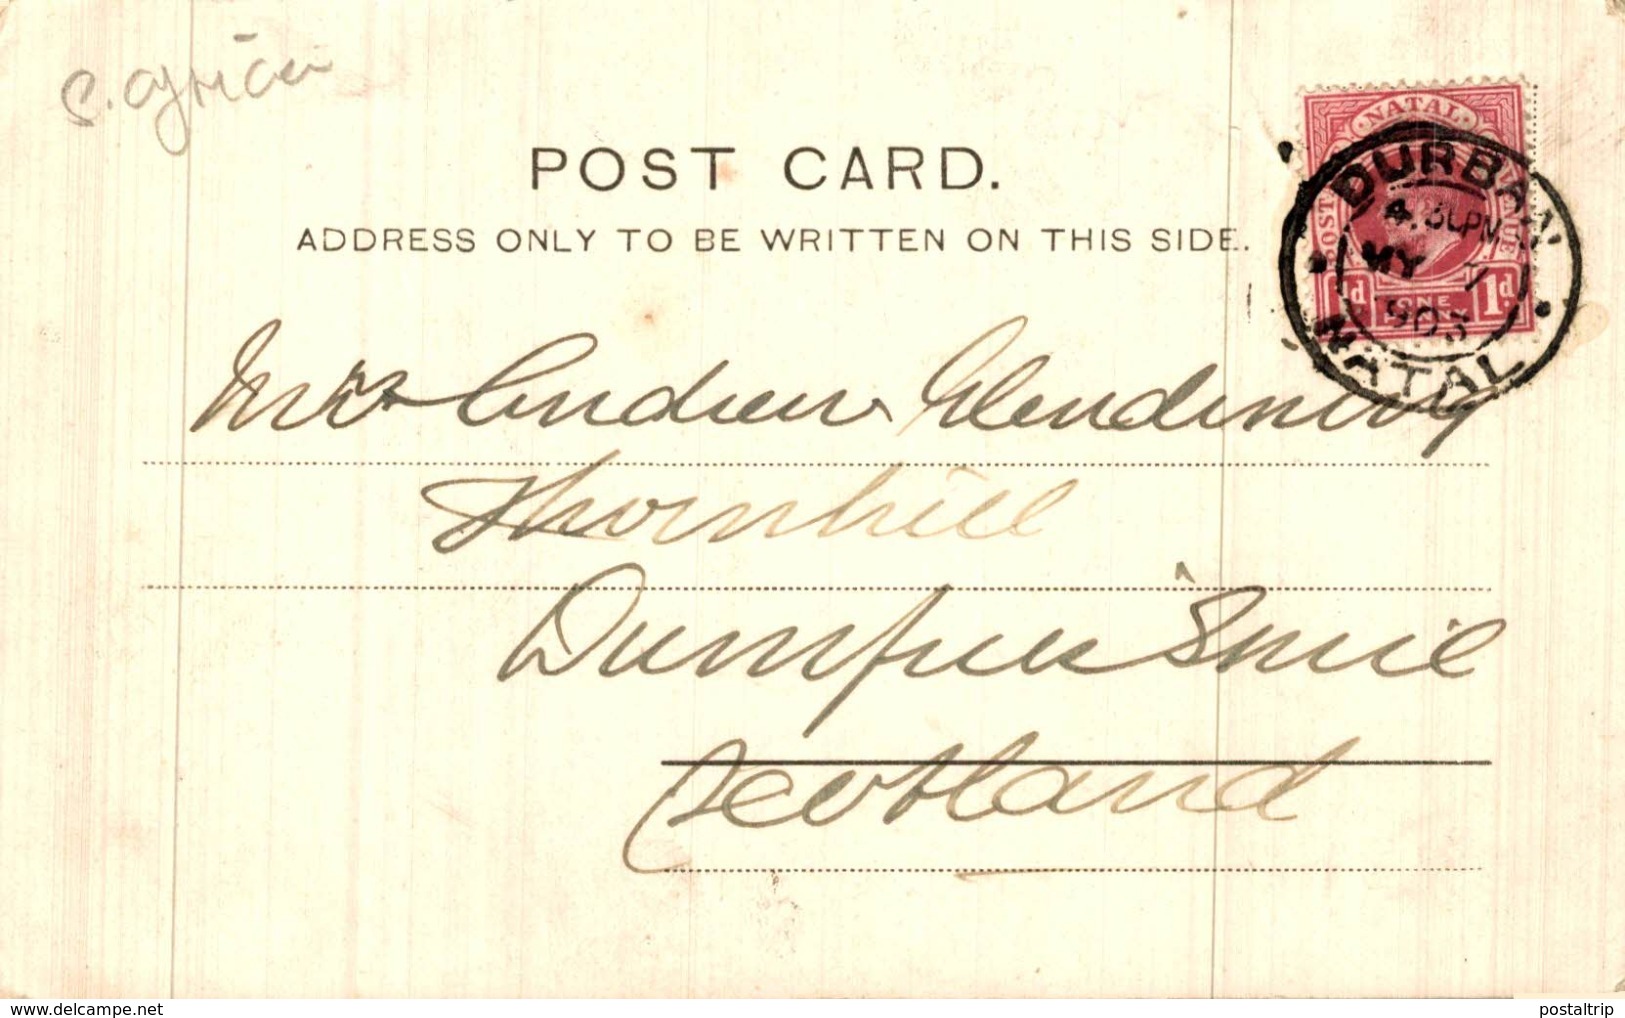 S. Africa
POST CARD.
ADDRESS ONLY TO BE WRITTEN ON THIS SIDE.
NATAL
POSTAGE REVENUE
1d ONE PENNY 1d
DURBAN
MY 7
903
NATAL
Mrs Andrew Glendinning
Thornhill
Dumfriesshire
Scotland
postaltrip